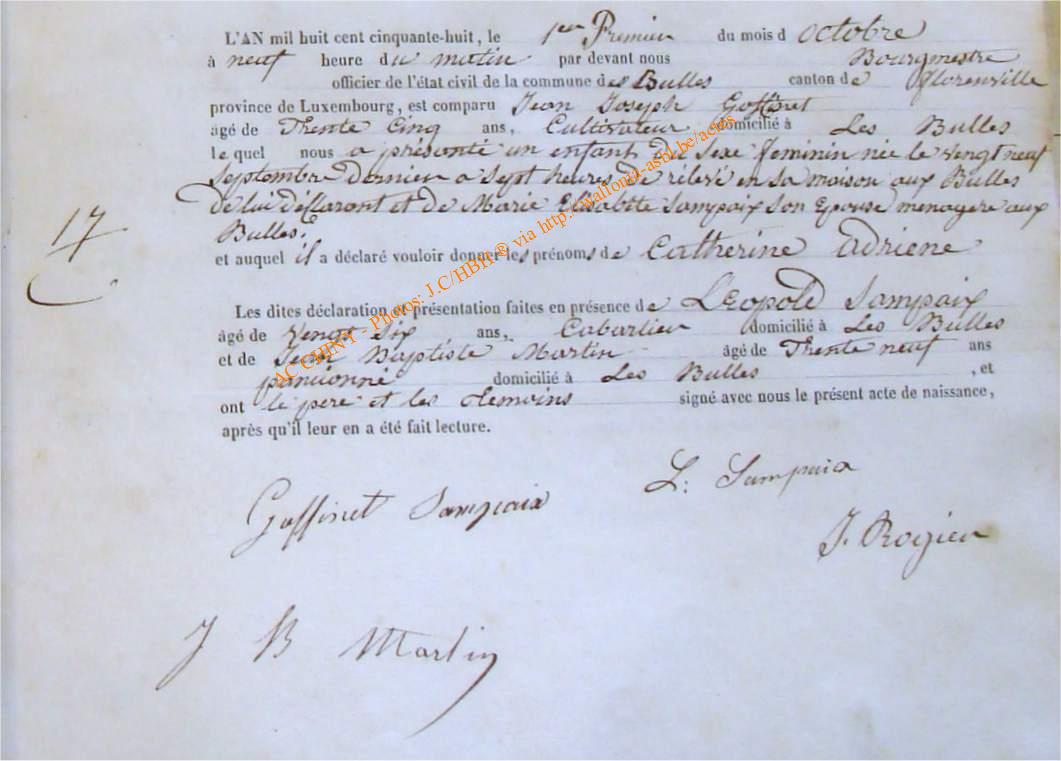 L'AN mil huit cent cinquante-huit, le 1er Premier du mois d octobre
à neuf heure du matin par devant nous Bourgmestre
officier de l'état civil de la commune des Bulles canton de florenville
province de Luxembourg, est comparu Jean Joseph Goffinet
âgé de Trente Cinq ans, Cultivateur domicilié à Les Bulles
le quel nous a présenté un enfant du sexe feminin née le vengt neuf
Septembre dernier a sept heures de rélevé en sa maison aux Bulles
de lui déllaront et de Marie Elisabette Sampaix son Epouse menagere aux
17
Bulles.
et auquel il a déclaré vouloir donner les prénoms de Catherine adriene
Les dites déclaration et présentation faites en présence de LEopold Sampaix
âgé de vengt six ans, Cabartier domicilié à Les Bulles
et de Jean Baptiste Martin âgé de Trente neuf ans
pancionné domicilié à Les Bulles , et
ont le pere et les temoins signé avec nous le présent acte de naissance,
après qu'il leur en a été fait lecture.
L. Sampaix
Goffinet Sampaix
J. Rogier
J B Martin
AC CHINY - Photos: J.C/HBH ® via http://walfonid-asbl.be/actes